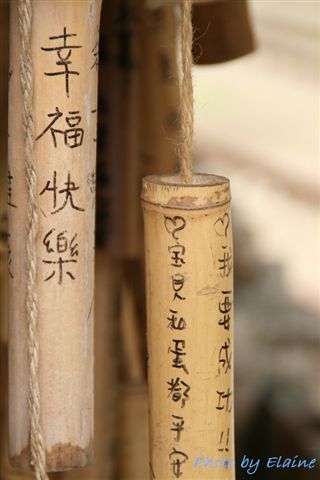 幸福快樂
♡我要成功!!
♡宝貝私蛋都平安
Photo by Elaine